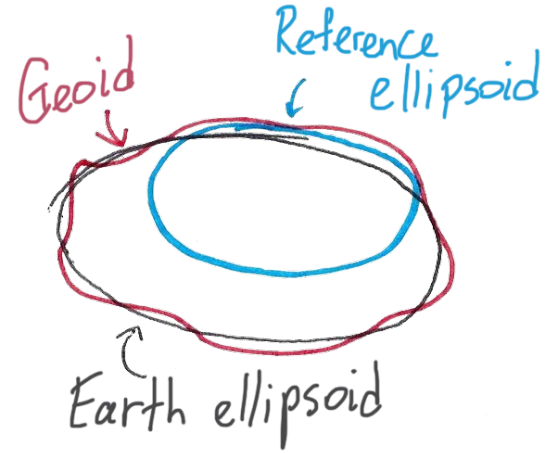 Geoid
Reference
ellipsoid
Earth ellipsoid